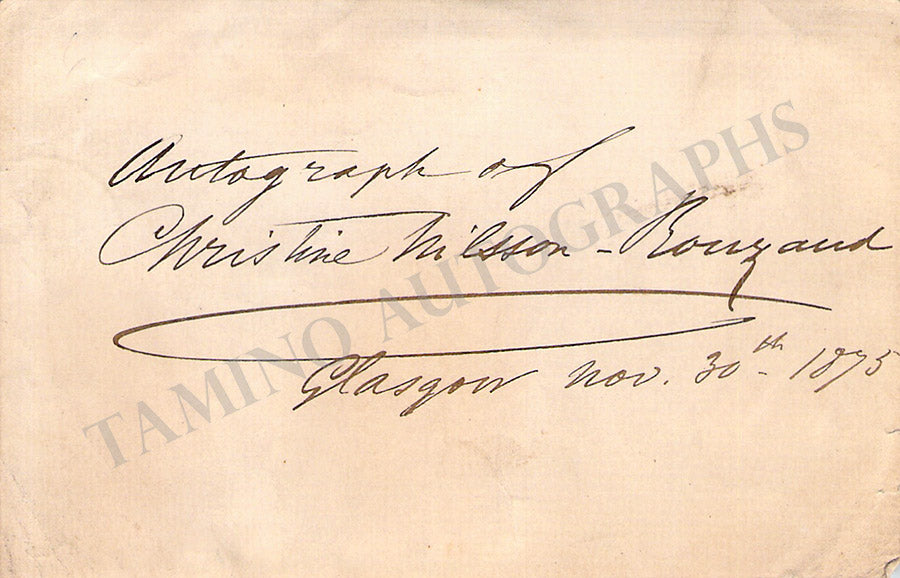 Autograph of
Christine Nilsson - Rouzaud
Glasgow Nov. 30th - 1875
TAMINO AUTOGRAPHS